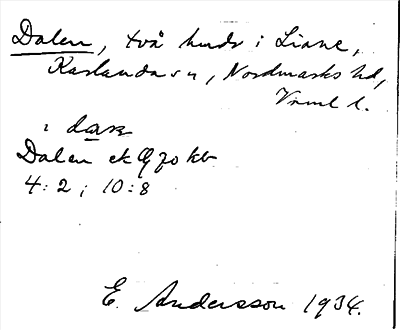 Dalen, två hmdr i Liane,
Karlanda sn, Nordmarks hd,
Vrml l.
i dase
Dalen ek
4:2; 10:8
E. Andersson 1934.